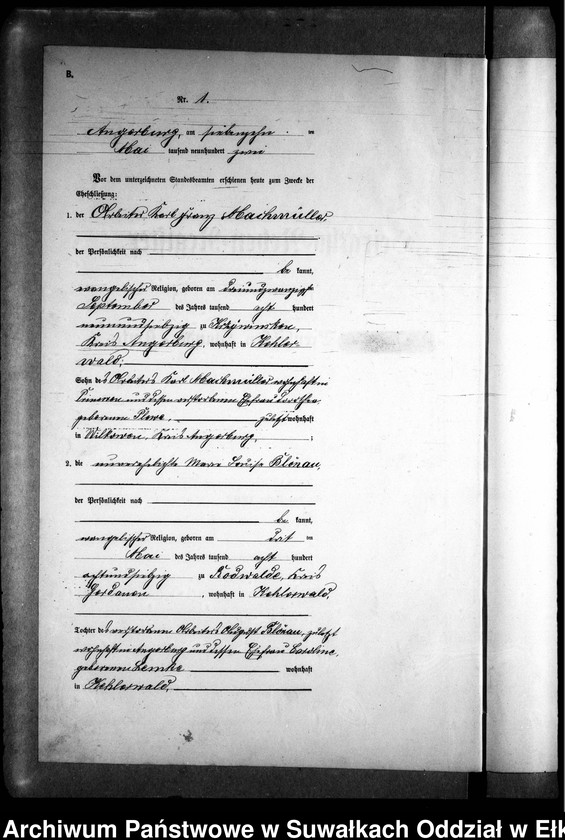 B.
Nr. 1.
Angerburg, am siebzehn ten
Mai tausend neunhundert zwei
Vor dem unterzeichneten Standesbeamten erschienen heute zum Zwecke der
Eheschließung:
1. der Arbeiter Karl Franz Maihmüller,
der Persönlichkeit nach
be kannt,
evangelischer Religion, geboren am dreiundzwanzigst
September des Jahres tausend acht hundert
neunundsiebzig zu Krzywinsken,
Kreis Angerburg, wohnhaft in Kehler
wald,
Sohn des Arbeiters Karl Maihmüller wohnhaft in
und dessen verstorbenen Ehefrau Dorothea
geborenen zuletzt wohnhaft
in Wilkowen, Kreis Angerburg, ;
2. die unverehelichte Marie Louise Blönau,
der Persönlichkeit nach
be kannt,
evangelischer Religion, geboren am drit ten
Mai des Jahres tausend acht hundert
achtundsiebzig zu Rodwalde, Kreis
Gerdauen , wohnhaft in Kehlerwald,
Tochter des verstorbenen Arbeiters August Blönau, zuletzt
wohnhaft in Angerburg und dessen Ehefrau Caroline,
geborenen Lemke wohnhaft
in Kehlerwald,
Archiwum Państwowe w Suwałkach Oddział w Ełk